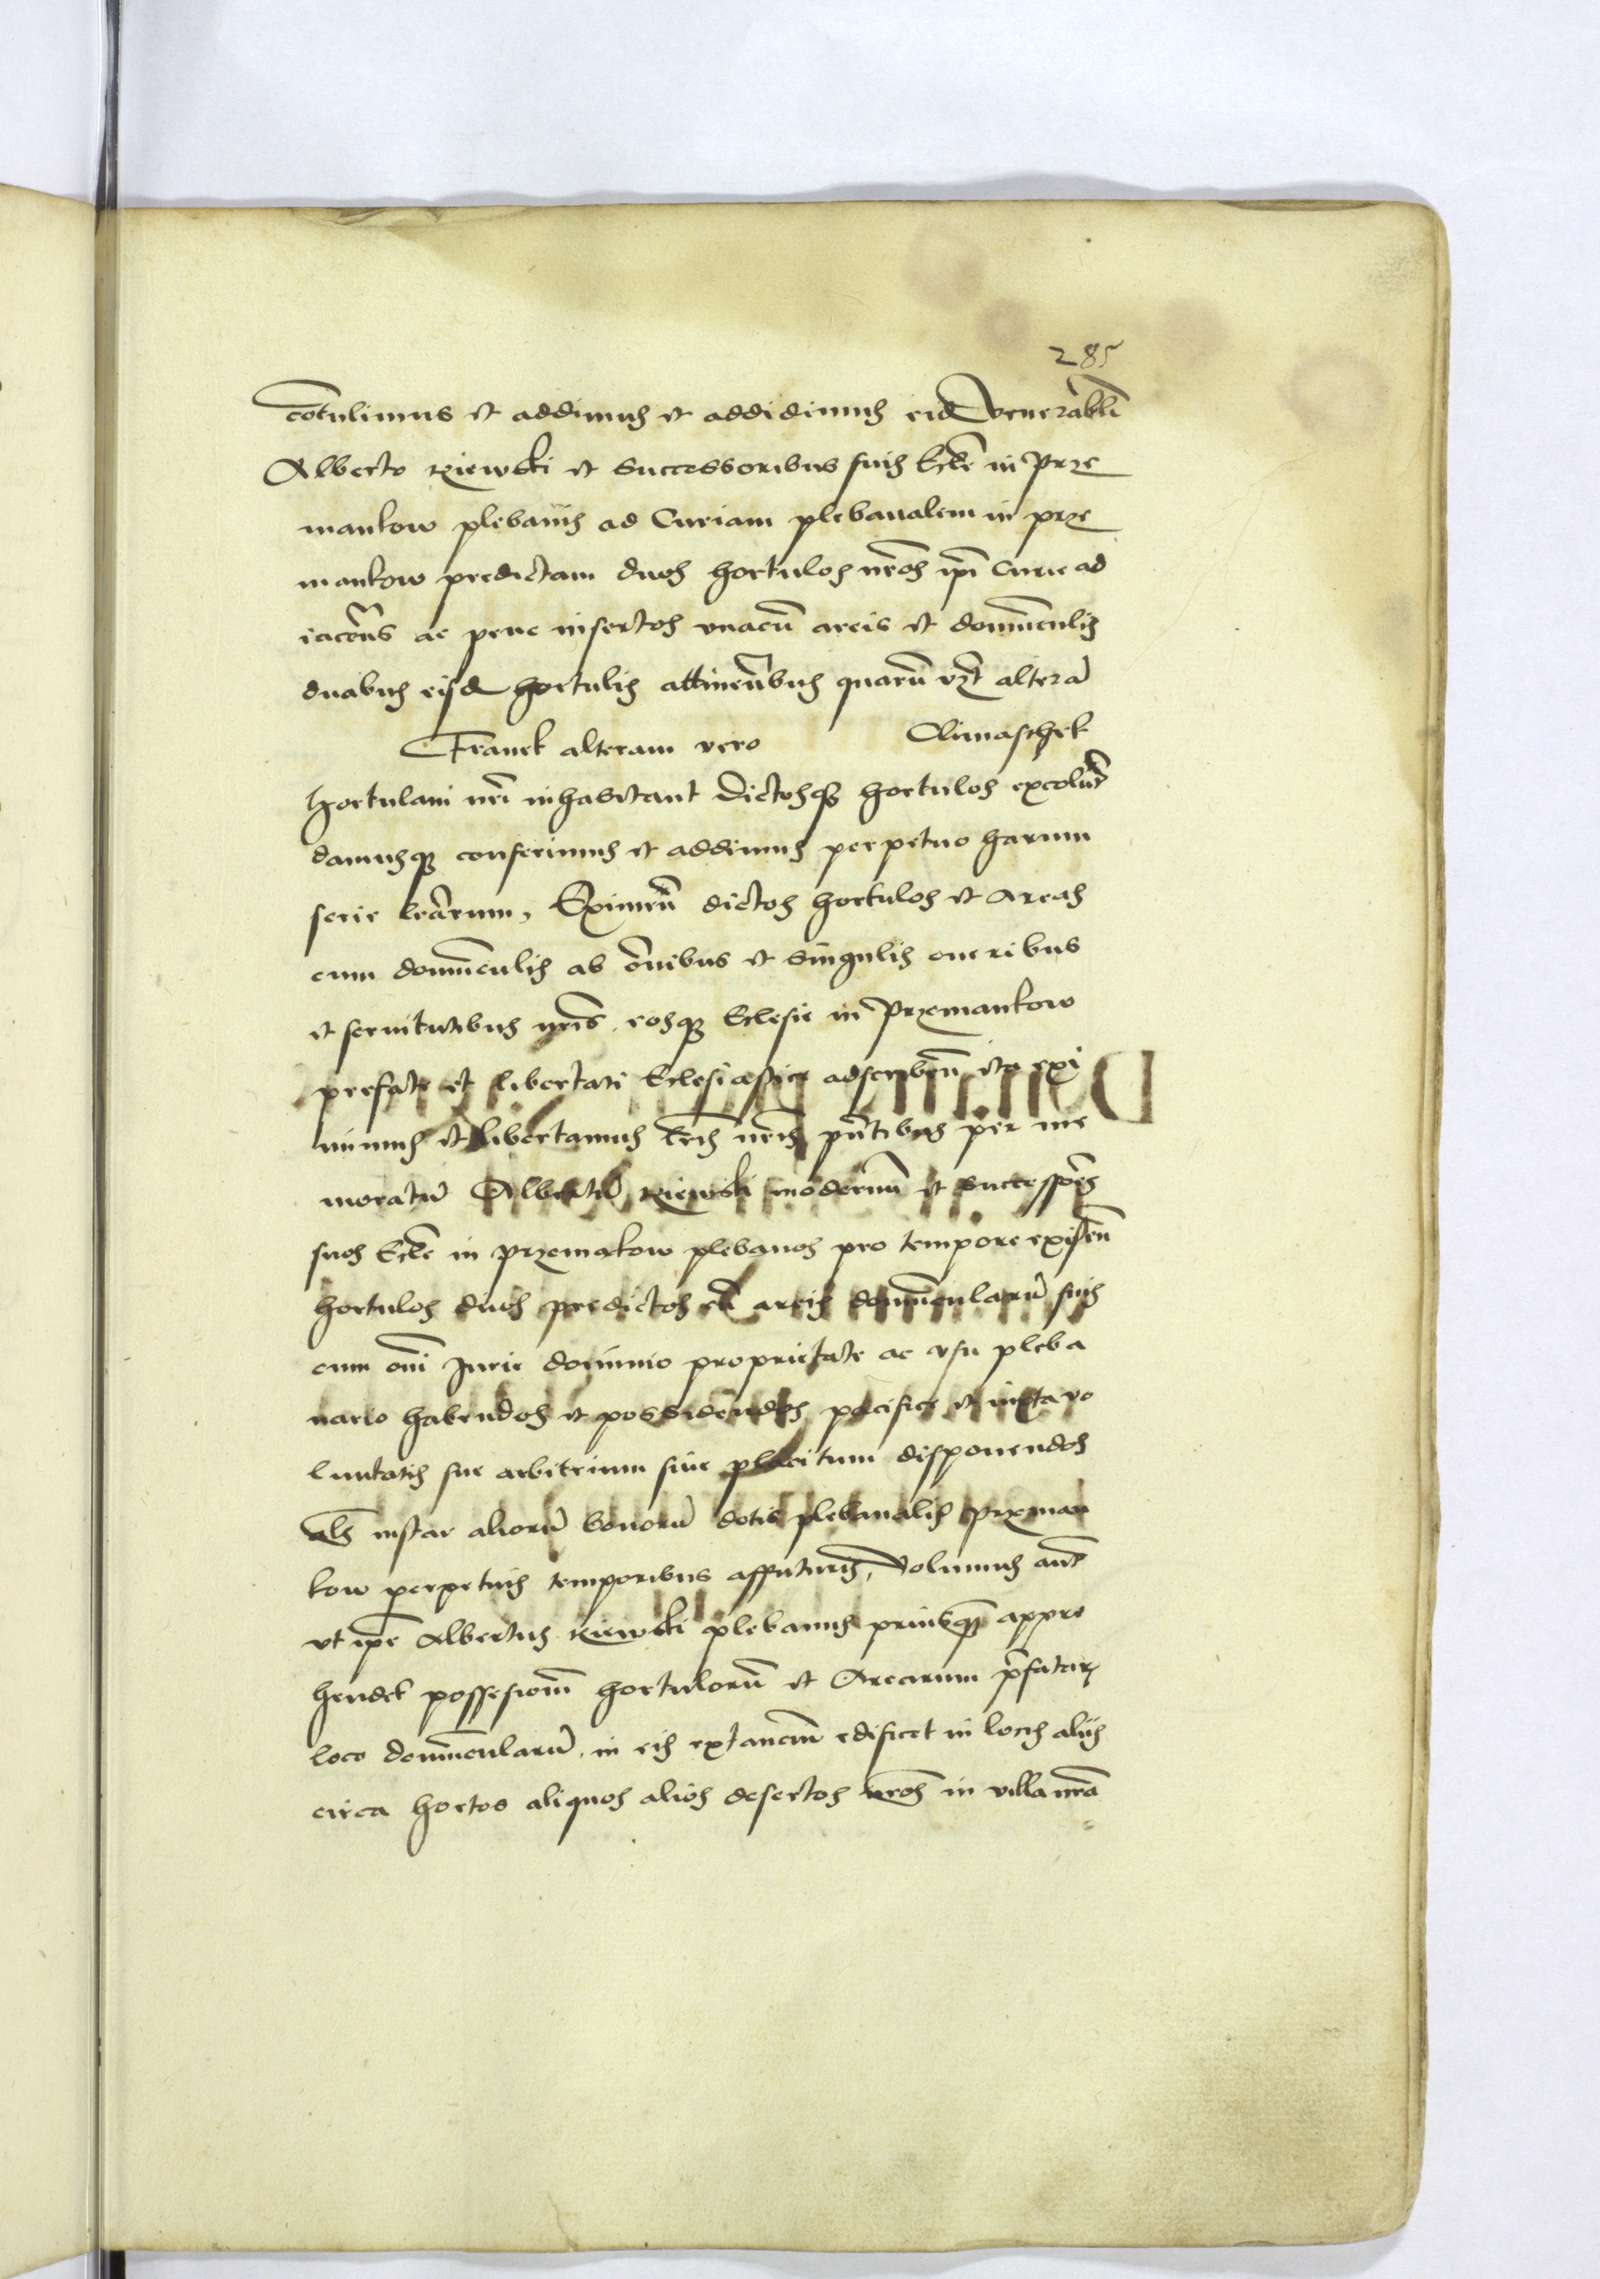 285
cōtulimus et addimus et addidimus eid Venerabli
Alberto Kiewski et Successoribus suis Eclē in Prze
mankow plebanis ad Curiam plebanalem in prze
mankow predictam duos hortulos nr̄os ip̄i Curie ad
iacen̄s ac pene insertos vnacū areis et domūculis
duabus eisd hortulis attinen̄bus quarū vzt alterā
Franek alteram vero Climaschek
hortulani nr̄i inhabitant dictosqȝ hortulos excolūt
damusqȝ conferimus et addimus perpetuo harum
serie lr̄arum, Eximen̄ dictos hortulos et Areas
cum domūculis ab om̄ibus et singulis oneribus
et seruitutibus nr̄is eosqȝ Eclesie in Przemankow
prefate et libertati Eclesiastice adscriben̄ ita exi
mimus et libertamus lr̄is nr̄is pn̄tibus per me
moratū Albertū Kiewski modernū et Successores
suos Eclē in Przemakow plebanos pro tempore existen̄
hortulos duos predictos cū areis domūcularū suis
cum om̄i Jure dominio proprietate ac vsu pleba
nario habendos et possidendos pacifice et iuxta vo
luntatis sue arbitrium siue placitum disponendos
als instar aliorū bonorū dotis plebanalis Przeman
kow perpetuis temporibus affuturis, Volumus aut̄
vt ip̄e Albertus Kiewski plebanus priusqȝ appre
hendet possesionē hortulorū et Arearum p̄fatar
loco domūcularū in eis extanciū edificet in locis aliis
circa hortos aliquos alios desertos nr̄os in villa nr̄a